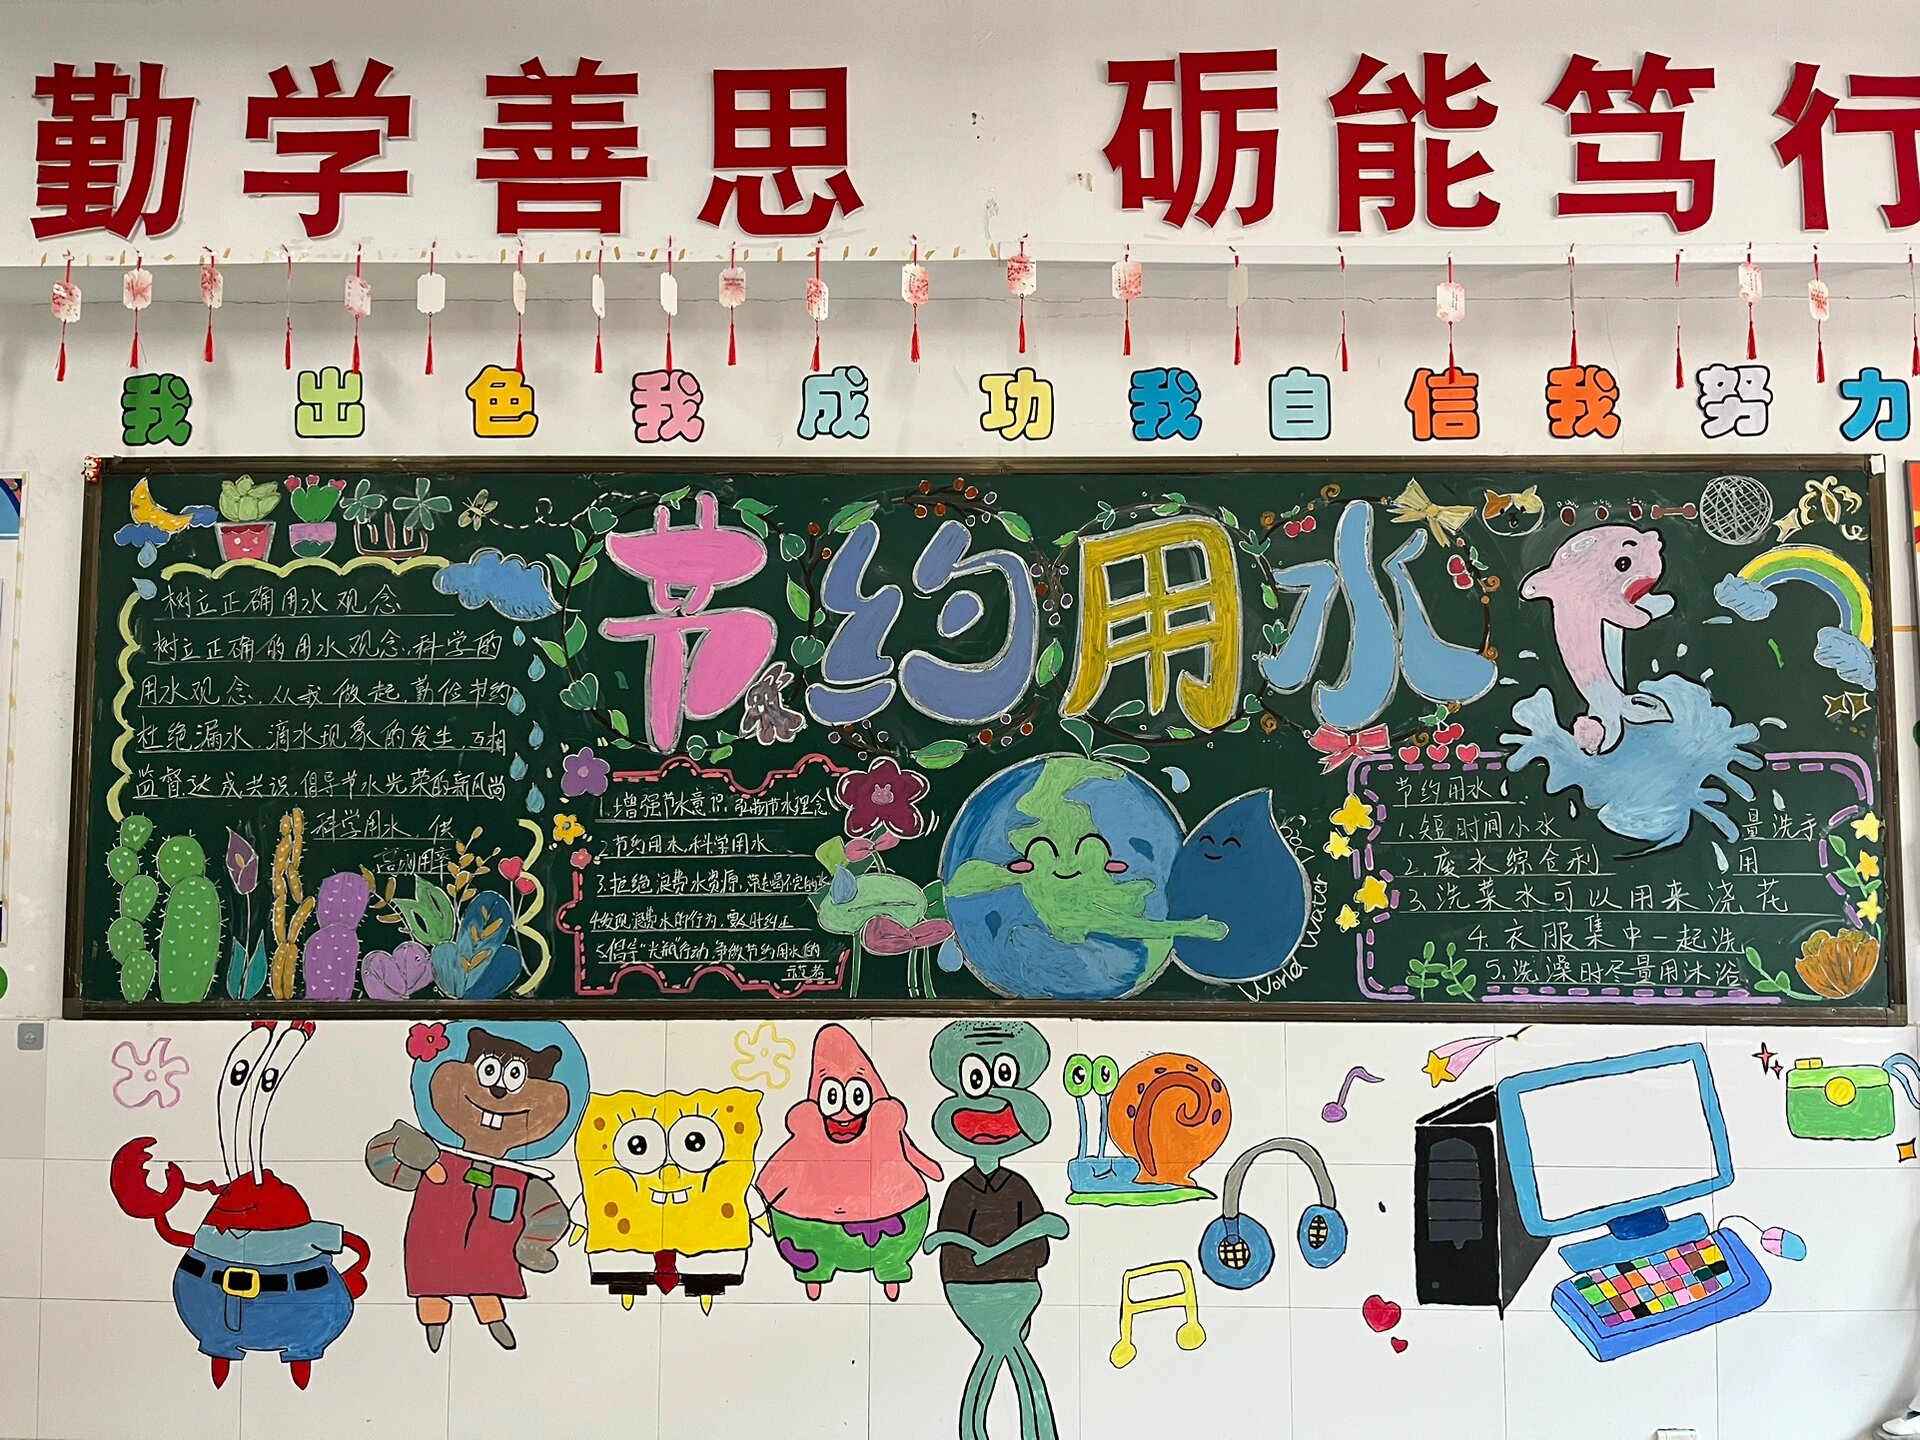 勤学善思 砺能笃行
我出色我成功我自信我努力
节约用水
树立正确用水观念
树立正确的用水观念,科学的
用水观念,从我做起,勤俭节约
杜绝漏水,滴水现象的发生,互相
监督,达成共识,倡导节水光荣的新风尚
科学用水,供
高利用率
1.增强节水意识,
2.节约用水,科学用水
3.拒绝浪费水资源,带走喝不完的水
4.发现浪费水的行为,要及时纠正
5.倡导"光瓶"行动,争做节约用水的
示范者
World Water
Day
节约用水:
1.短时间小水 量洗手
2.废水综合利 用
3.洗菜水可以用来浇花
4.衣服集中一起洗
5.洗澡时尽量用沐浴